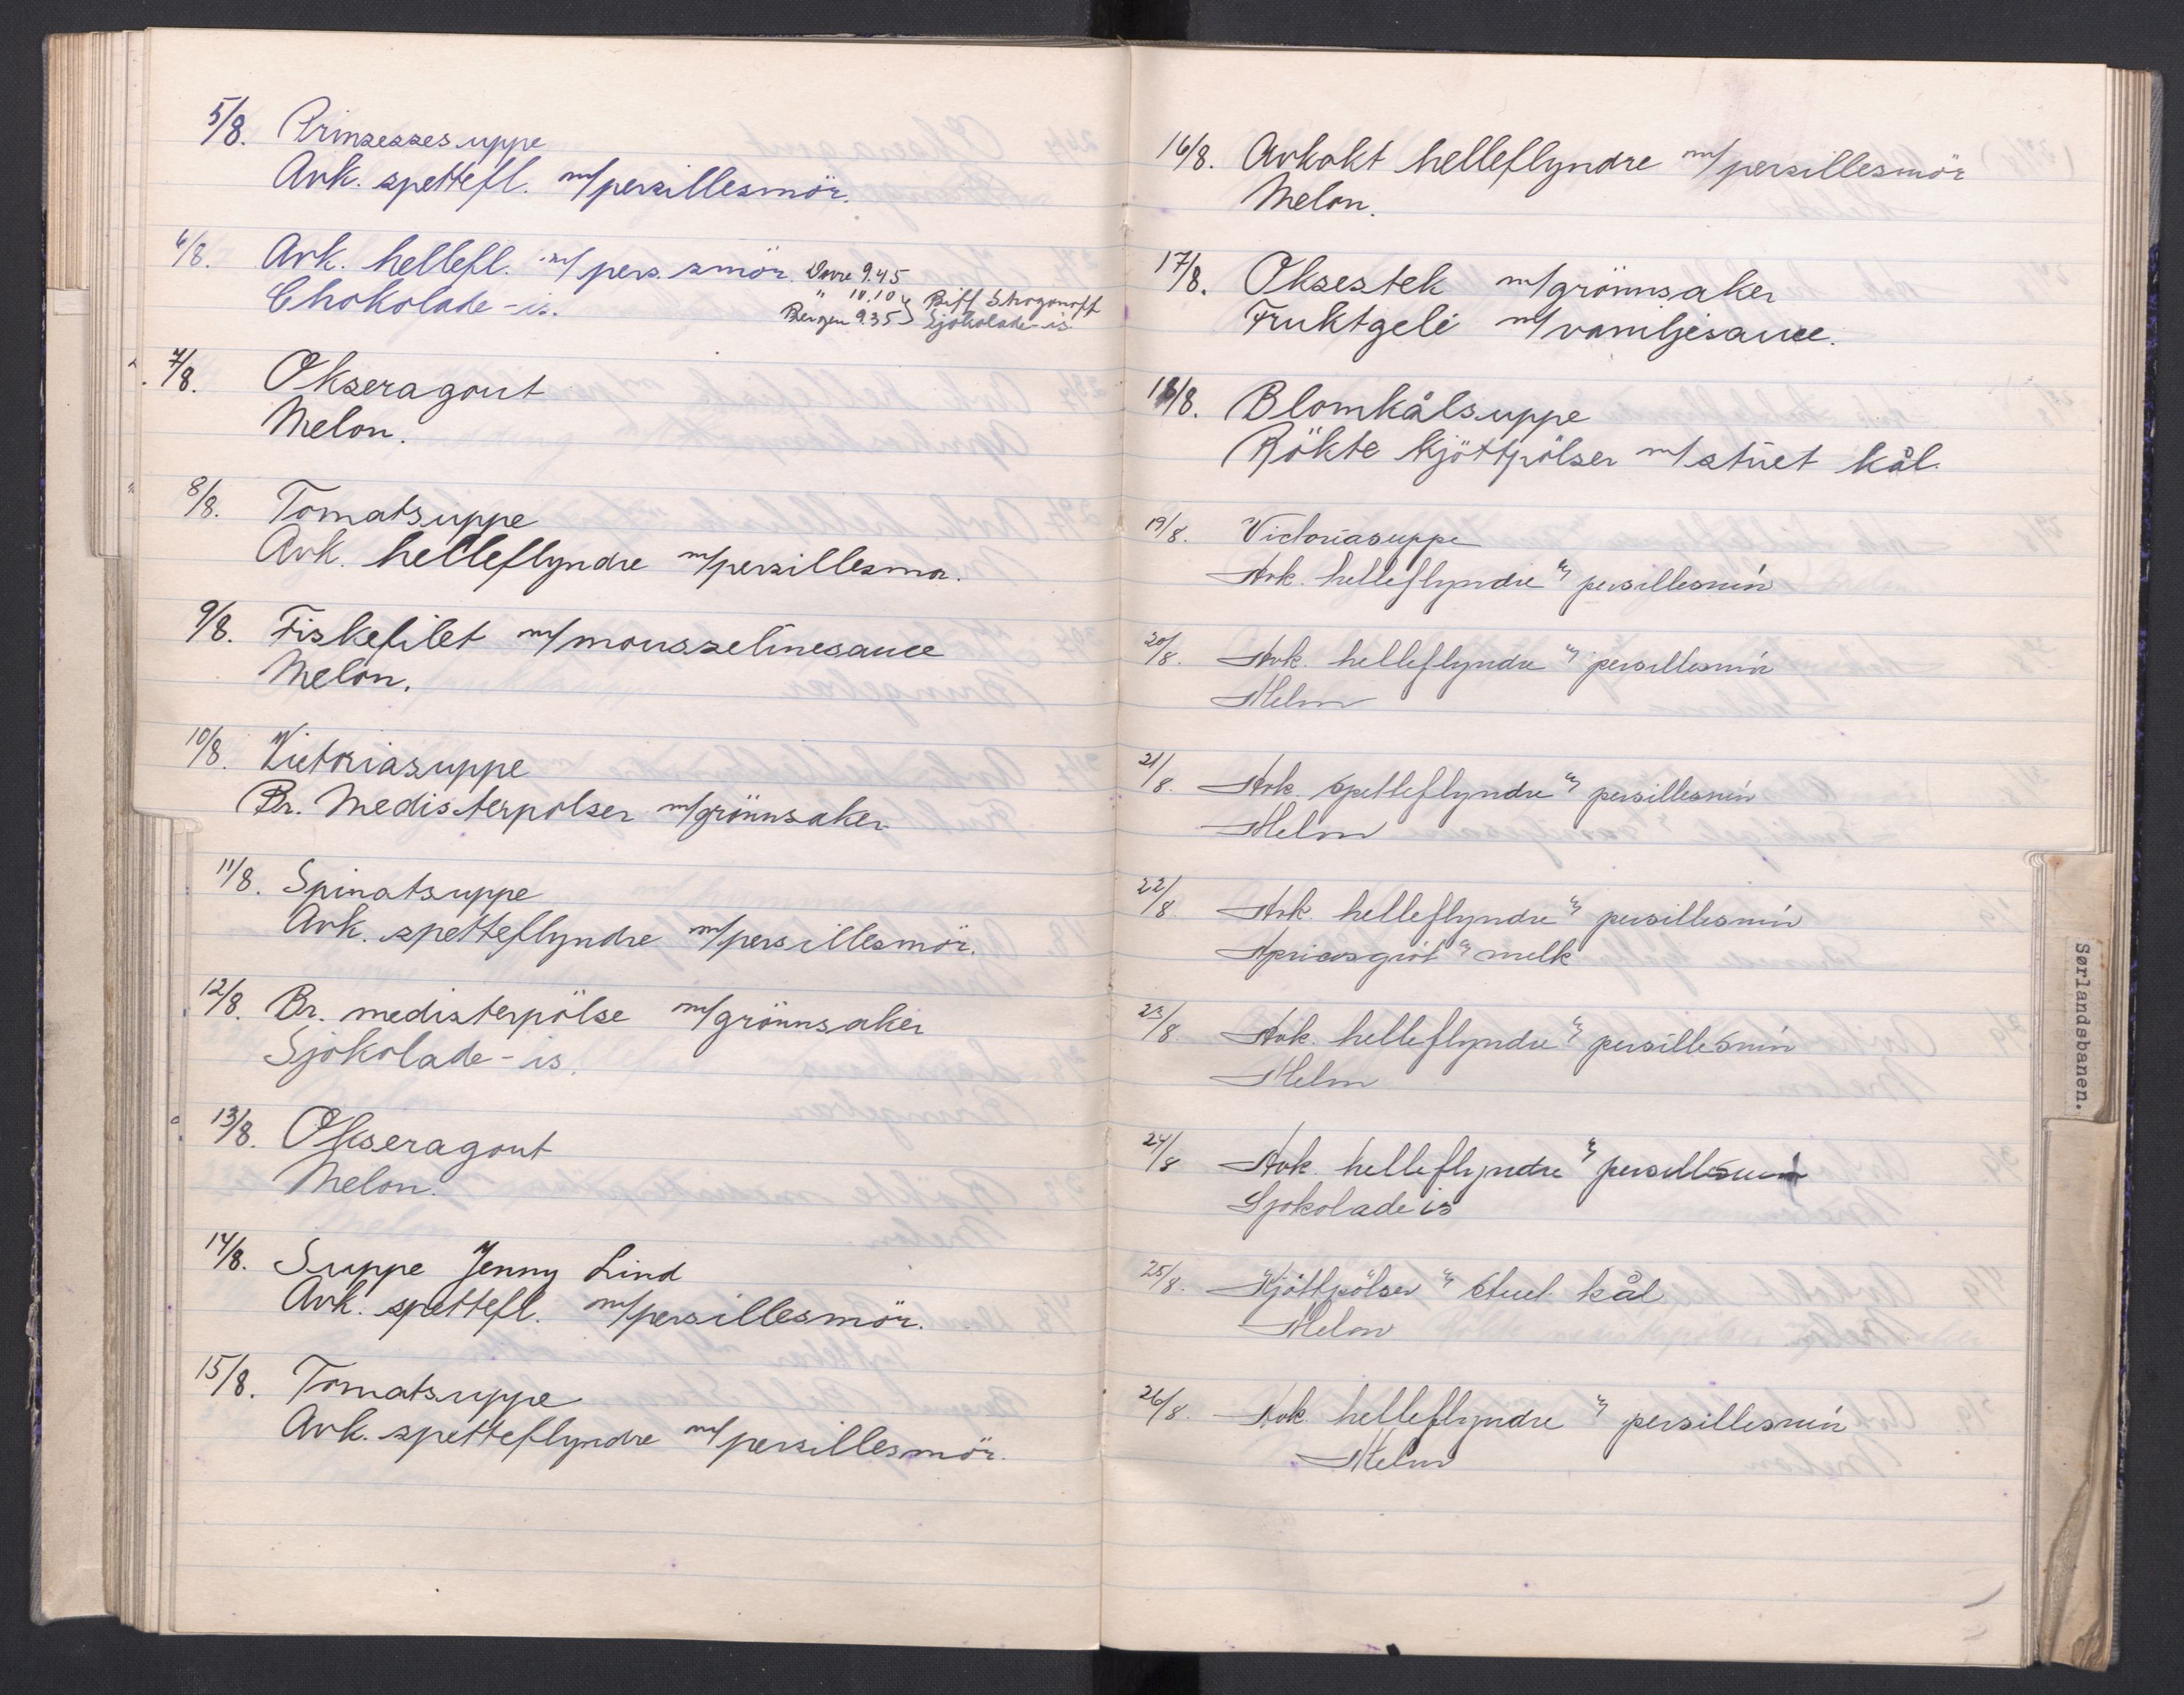 5/8. Prinsessesuppe
Avk. spettefl. m/persillesmör.
6/8. Avk. hellefl. m/pers. smör. Dovre 9.45
" 10.10
Chokolade-is. Bergen 9.35 } Biff Stroganoff
Sjokolade-is
7/8. Okseragout
Melon.
8/8. Tomatsuppe
Avk. helleflyndre m/persillesmør.
9/8. Fiskefilet m/mousselinesauce
Melon.
10/8. Victoriasuppe
Br. Medisterpölser m/grönnsaker
11/8. Spinatsuppe
Avk. spetteflyndre m/persillesmör.
12/8. Br. medisterpölse m/grönnsaker
Sjokolade-is.
13/8. Okseragout
Melon.
14/8. Suppe Jenny Lind
Avk. spettefl. m/persillesmör.
15/8. Tomatsuppe
Avk. spetteflyndre m/persillesmör.
16/8. Avkokt helleflyndre m/persillesmör
Melon.
17/8. Oksestek m/grönnsaker
Fruktgelé m/vaniljesauce.
18/8. Blomkålsuppe
Rökte kjöttpölser m/stuet kål.
19/8. Victoriasuppe
Avk. helleflyndre m/ persillesmör
20/8. Avk. helleflyndre m/ persillesmör
Melon
21/8. Avk. spetteflyndre m/ persillesmör
Melon
22/8 Avk. helleflyndre m/ persillesmör
Apricosgröt m/ melk
23/8. Avk. helleflyndre m/ persillesmör
Melon
24/8 Avk. helleflyndre m/ persillesmör
Sjokolade is
25/8. Kjöttpölser m/ stuet kål
Melon
26/8. Avk. helleflyndre m/ persillesmör
Melon
Sørlandsbanen.